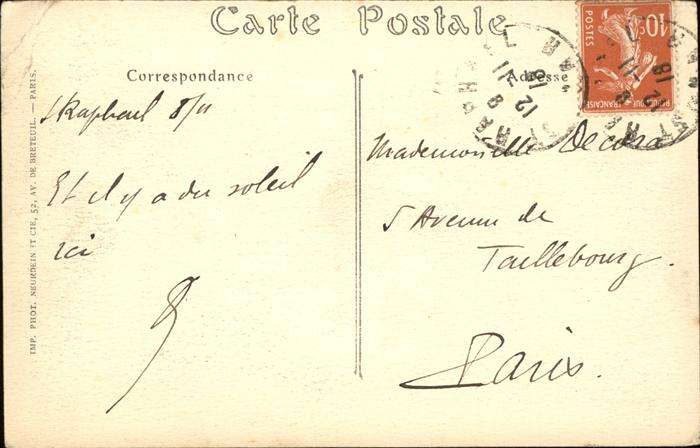 Carte Postale
Correspondance
Adresse
St Raphael 8/11
Et il y a du soleil
ici
Mademoiselle Decora
5 Avenue de
Taillebourg.
Paris.
IMP. PHOT. NEURDEIN ET CIE, 52, AV. DE BRETEUIL. — PARIS.
10c
POSTES
RÉPUBLIQUE FRANÇAISE